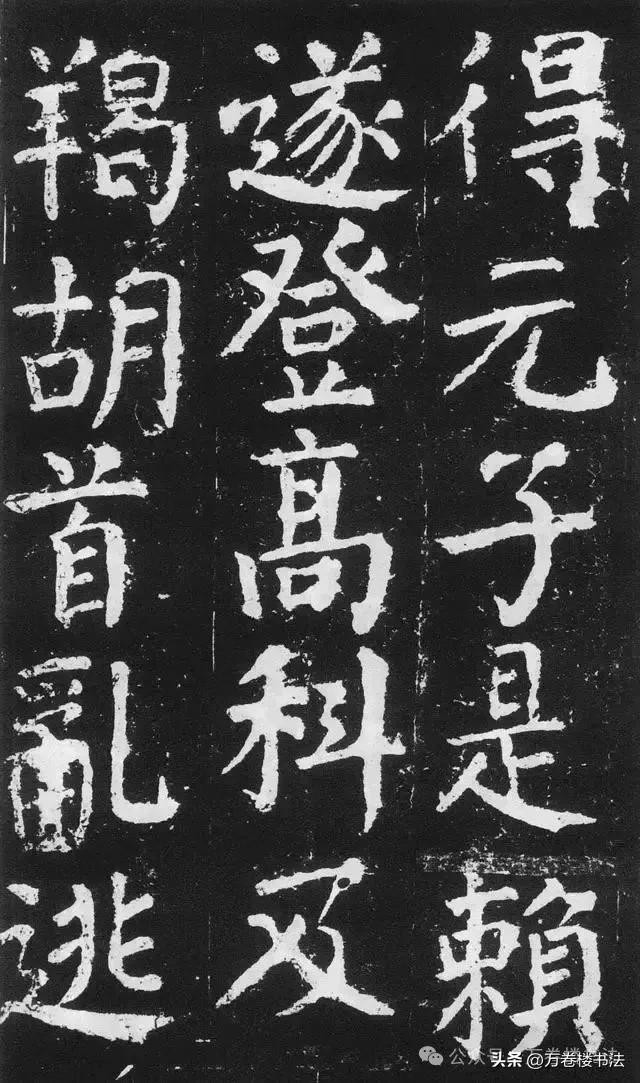 得元子是賴
遂登高科及
羯胡首亂逃
公众号
头条 @万卷楼书法